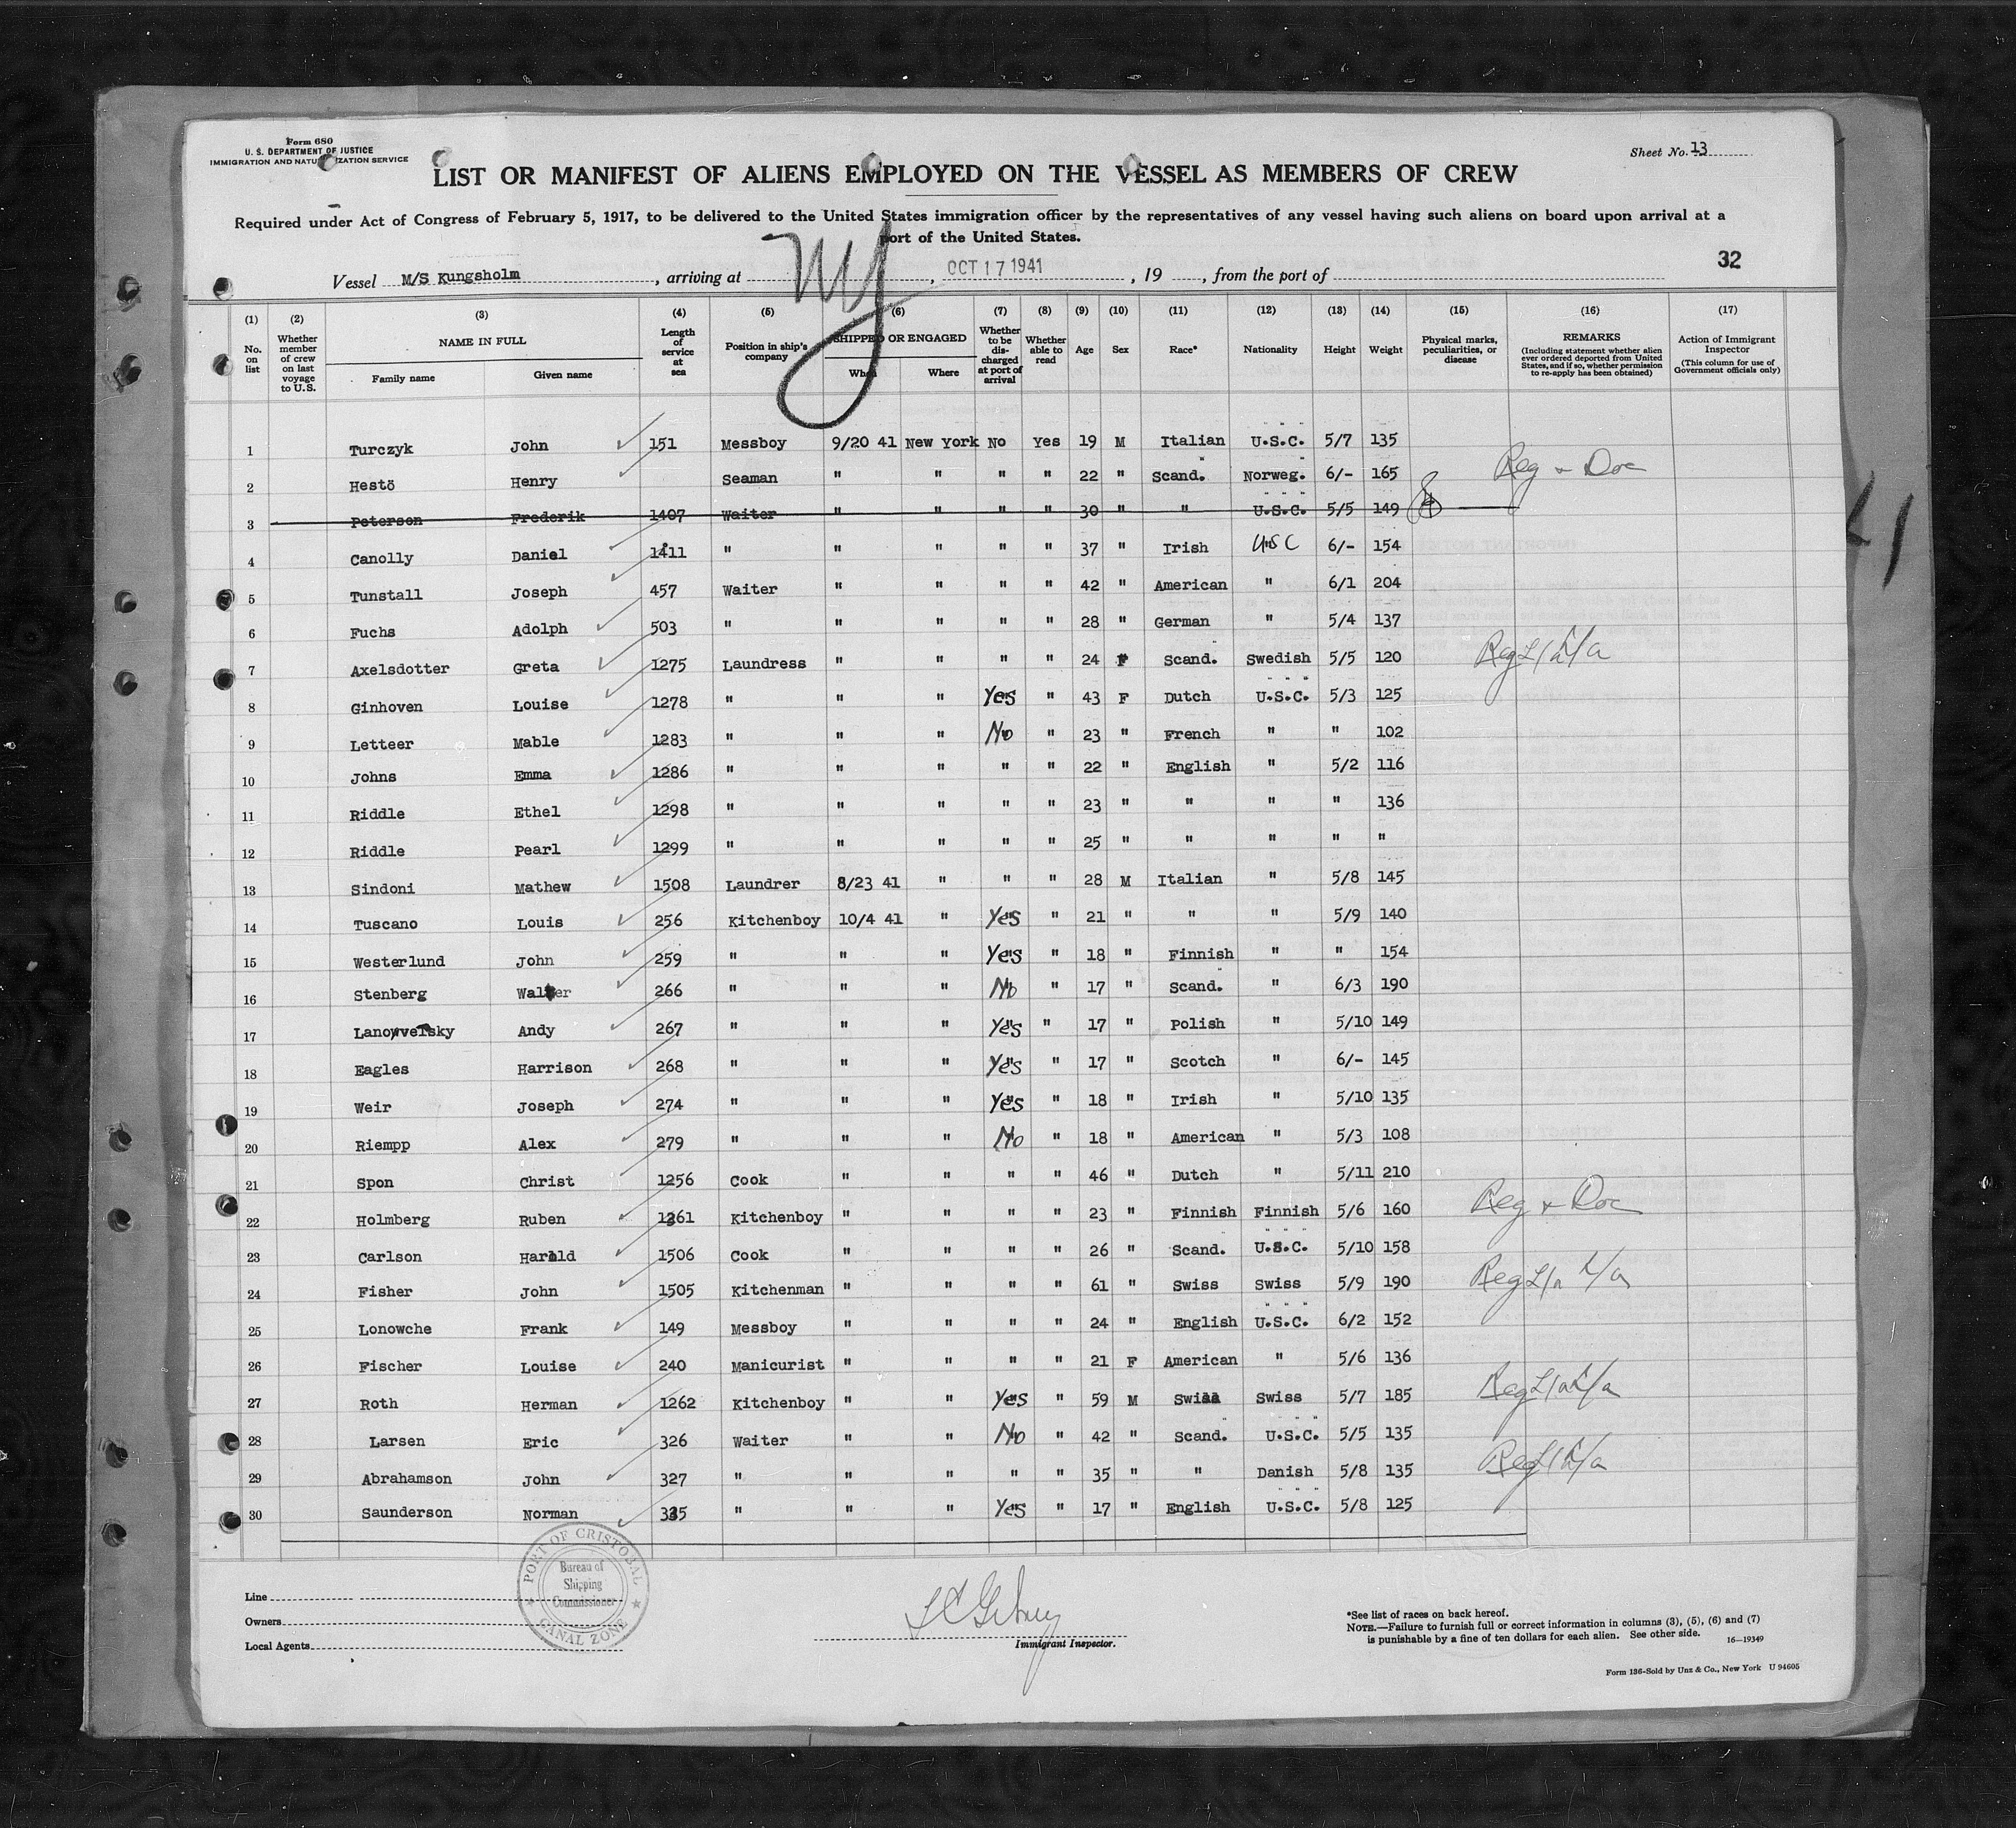 Form 680
U. S. DEPARTMENT OF JUSTICE
IMMIGRATION AND NATURALIZATION SERVICE
Sheet No. 13
LIST OR MANIFEST OF ALIENS EMPLOYED ON THE VESSEL AS MEMBERS OF CREW
Required under Act of Congress of February 5, 1917, to be delivered to the United States immigration officer by the representatives of any vessel having such aliens on board upon arrival at a
port of the United States.
32
Vessel M/S Kungsholm, arriving at NY, OCT 17 1941, 19, from the port of
(1) (2) (3) (4) (5) (6) (7) (8) (9) (10) (11) (12) (13) (14) (15) (16) (17)
No. on list
Whether member of crew on last voyage to U.S.
NAME IN FULL
Family name Given name
Length of service at sea
Position in ship's company
SHIPPED OR ENGAGED
When Where
Whether to be discharged at port of arrival
Whether able to read
Age
Sex
Race*
Nationality
Height
Weight
Physical marks, peculiarities, or disease
REMARKS
(Including statement whether alien ever ordered deported from United States, and if so, whether permission to re-apply has been obtained)
Action of Immigrant Inspector
(This column for use of Government officials only)
1 Turczyk John 151 Messboy 9/20 41 New York No Yes 19 M Italian U.S.C. 5/7 135
2 Hestö Henry Seaman " " " " 22 " Scand. Norweg. 6/- 165 Reg + Doc
3 Peterson Frederik 1407 Waiter " " " " 30 " " U.S.C. 5/5 149
4 Canolly Daniel 1411 " " " " " 37 " Irish USC 6/- 154
5 Tunstall Joseph 457 Waiter " " " " 42 " American " 6/1 204
6 Fuchs Adolph 503 " " " " " 28 " German " 5/4 137
7 Axelsdotter Greta 1275 Laundress " " " " 24 F Scand. Swedish 5/5 120 Reg L/a
8 Ginhoven Louise 1278 " " " Yes " 43 F Dutch U.S.C. 5/3 125
9 Letteer Mable 1283 " " " No " 23 " French " " 102
10 Johns Emma 1286 " " " " " 22 " English " 5/2 116
11 Riddle Ethel 1298 " " " " " 23 " " " " 136
12 Riddle Pearl 1299 " " " " " 25 " " " " "
13 Sindoni Mathew 1508 Laundrer 8/23 41 " " " 28 M Italian " 5/8 145
14 Tuscano Louis 256 Kitchenboy 10/4 41 " Yes " 21 " " " 5/9 140
15 Westerlund John 259 " " " Yes " 18 " Finnish " " 154
16 Stenberg Walter 266 " " " No " 17 " Scand. " 6/3 190
17 Andy 267 " " " Yes " 17 " Polish " 5/10 149
18 Eagles Harrison 268 " " " Yes " 17 " Scotch " 6/- 145
19 Weir Joseph 274 " " " Yes " 18 " Irish " 5/10 135
20 Riempp Alex 279 " " " No " 18 " American " 5/3 108
21 Spon Christ 1256 Cook " " " " 46 " Dutch " 5/11 210
22 Holmberg Ruben 1261 Kitchenboy " " " " 23 " Finnish Finnish 5/6 160 Reg + Doc
23 Carlson Harald 1506 Cook " " " " 26 " Scand. U.S.C. 5/10 158
24 Fisher John 1505 Kitchenman " " " " 61 " Swiss Swiss 5/9 190 Reg L/a
25 Lonowche Frank 149 Messboy " " " " 24 " English U.S.C. 6/2 152
26 Fischer Louise 240 Manicurist " " " " 21 F American " 5/6 136
27 Roth Herman 1262 Kitchenboy " " Yes " 59 M Swiss Swiss 5/7 185 Reg L/a
28 Larsen Eric 326 Waiter " " No " 42 " Scand. U.S.C. 5/5 135
29 Abrahamson John 327 " " " " " 35 " " Danish 5/8 135 Reg L/a
30 Saunderson Norman 335 " " " Yes " 17 " English U.S.C. 5/8 125
PORT OF CRISTOBAL
Bureau of
Shipping
Commissioner
CANAL ZONE
Line
Owners
Local Agents
Immigrant Inspector.
*See list of races on back hereof.
NOTE.—Failure to furnish full or correct information in columns (3), (5), (6) and (7)
is punishable by a fine of ten dollars for each alien. See other side. 16—19349
Form 136-Sold by Unz & Co., New York U 94605